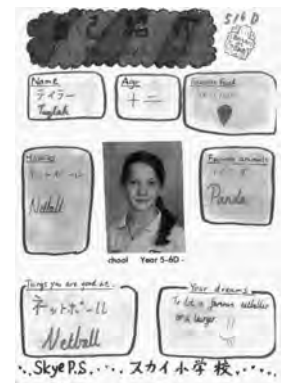 5/6 D
自己紹介
Name
テイラー
Taylah
Age
十二
Favourite Food
Hobbies
ネットボール
Netball
Favourite animals
パンダ
Panda
chool Year 5-6D -
Things you are good at..
ネットボール
Netball
Your dreams
To be a famous netballer
or a lawyer.
Skye P.S. スカイ小学校